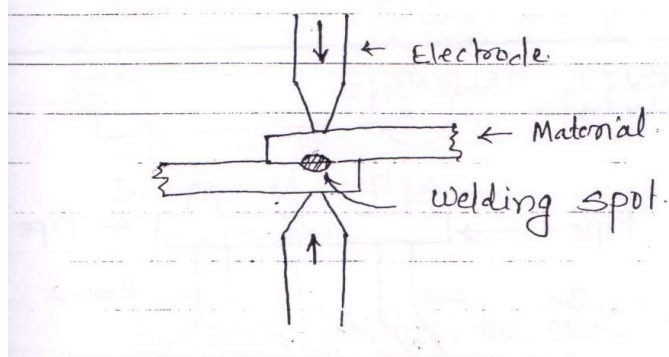 ← Electrode.
← Material.
Welding spot.